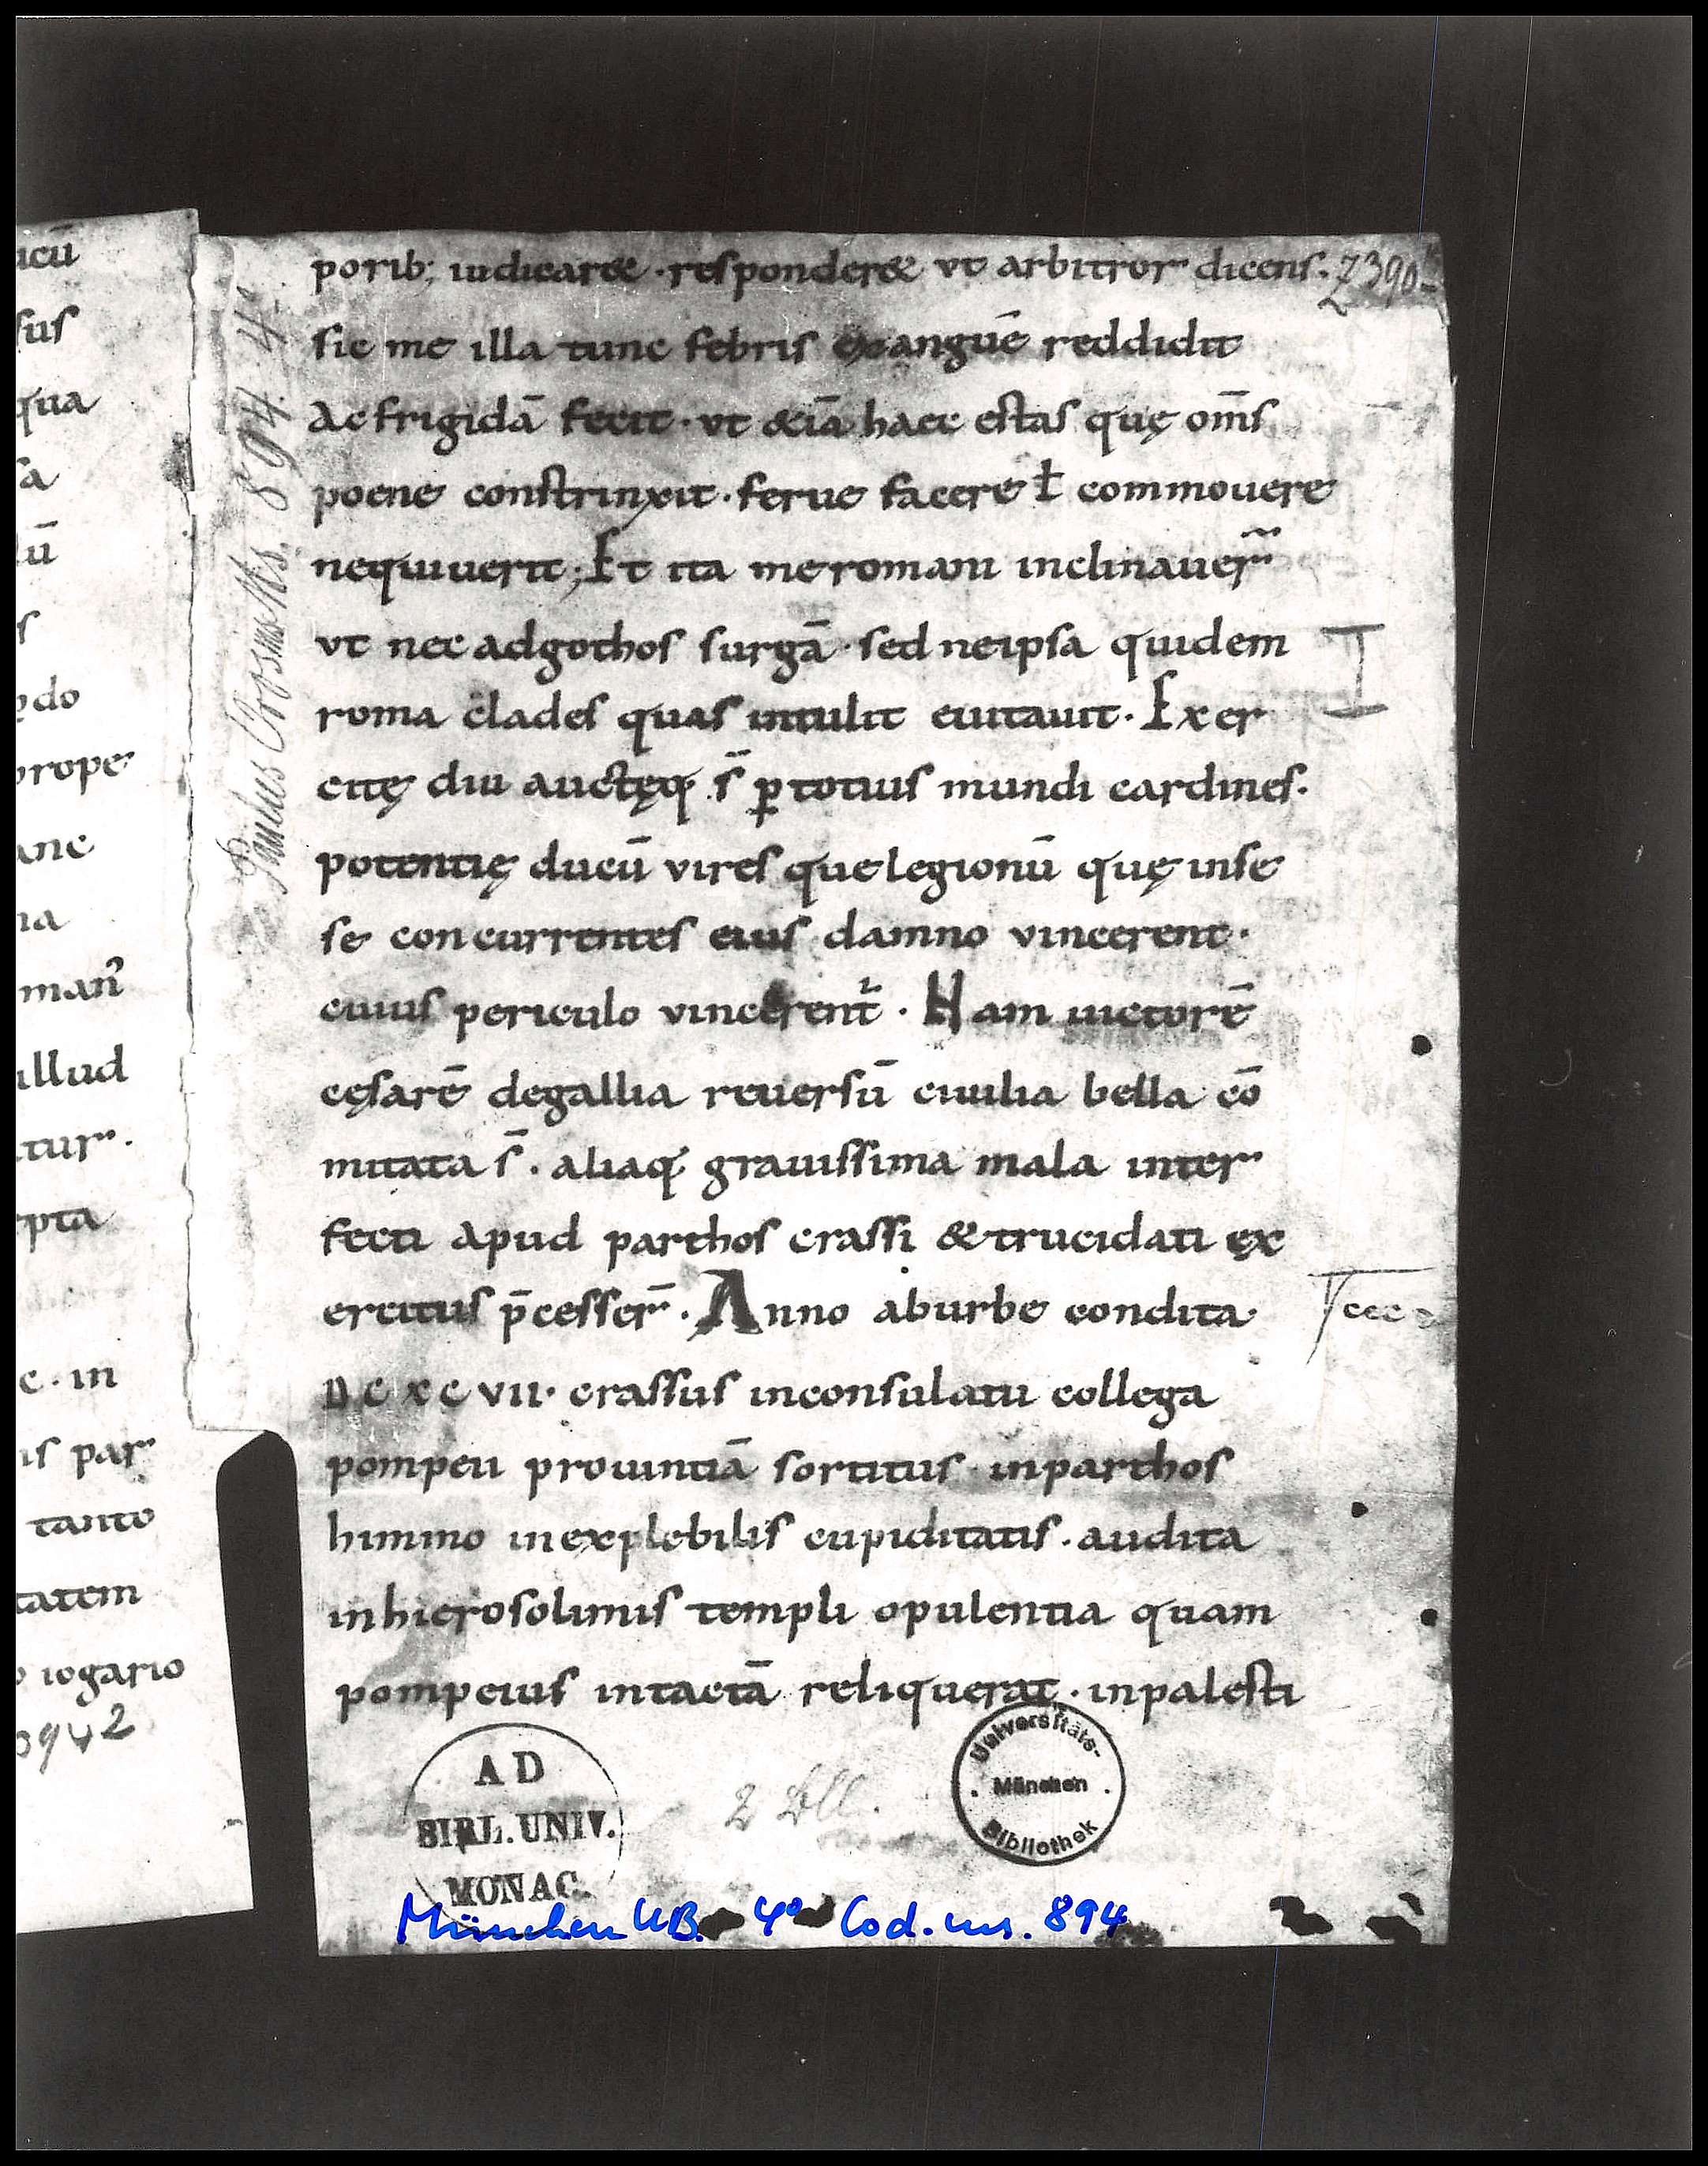 ıcū
sus
qua
sa
lū
s
ędo
prope
anc
na
man̄
ıllud
tur.
epta
c. in
ıs par
tanto
tatem
o iogario
Paulus Orosius Ms. 894. 4°
porib; iudicar& · responder& vt arbitror dicens.
sic me illa tunc febris exanguē reddidit
Ac frigidā fecit · vt &iā haec estas quę om̄s
poene constrinxit · ferue facere ł commouere
nequiuerit; Et ita me romani inclinauer̄
vt nec adgothos surgā · sed neipsa quidem
roma clades quas intulit euitauit · Exer
citę diu auctęq; s̄ ꝑ totius mundi cardines.
potentię ducū vires que legionū quę inse
se concurrentes eius damno vincerent.
cuius periculo vincerent̄ . Nam uictorē
cęsarē degallia reuersū ciuilia bella cō
mitata s̄ . aliaq; grauissima mala inter
fecti apud parthos crassi & trucidati ex
ercitus p̄cesser̄ . Anno aburbe condita
DCXCVII · crassus inconsulatu collega
pompeii prouintiā sortitus · inparthos
himmo inexplebilis cupiditatis . audita
inhierosolimis templi opulentia quam
pompeius intactā reliquerat . inpalesti
2390
AD
BIBL. UNIV.
MONAC.
2 Bll.
Universitäts-
München
Bibliothek
München UB. 4° Cod. ms. 894